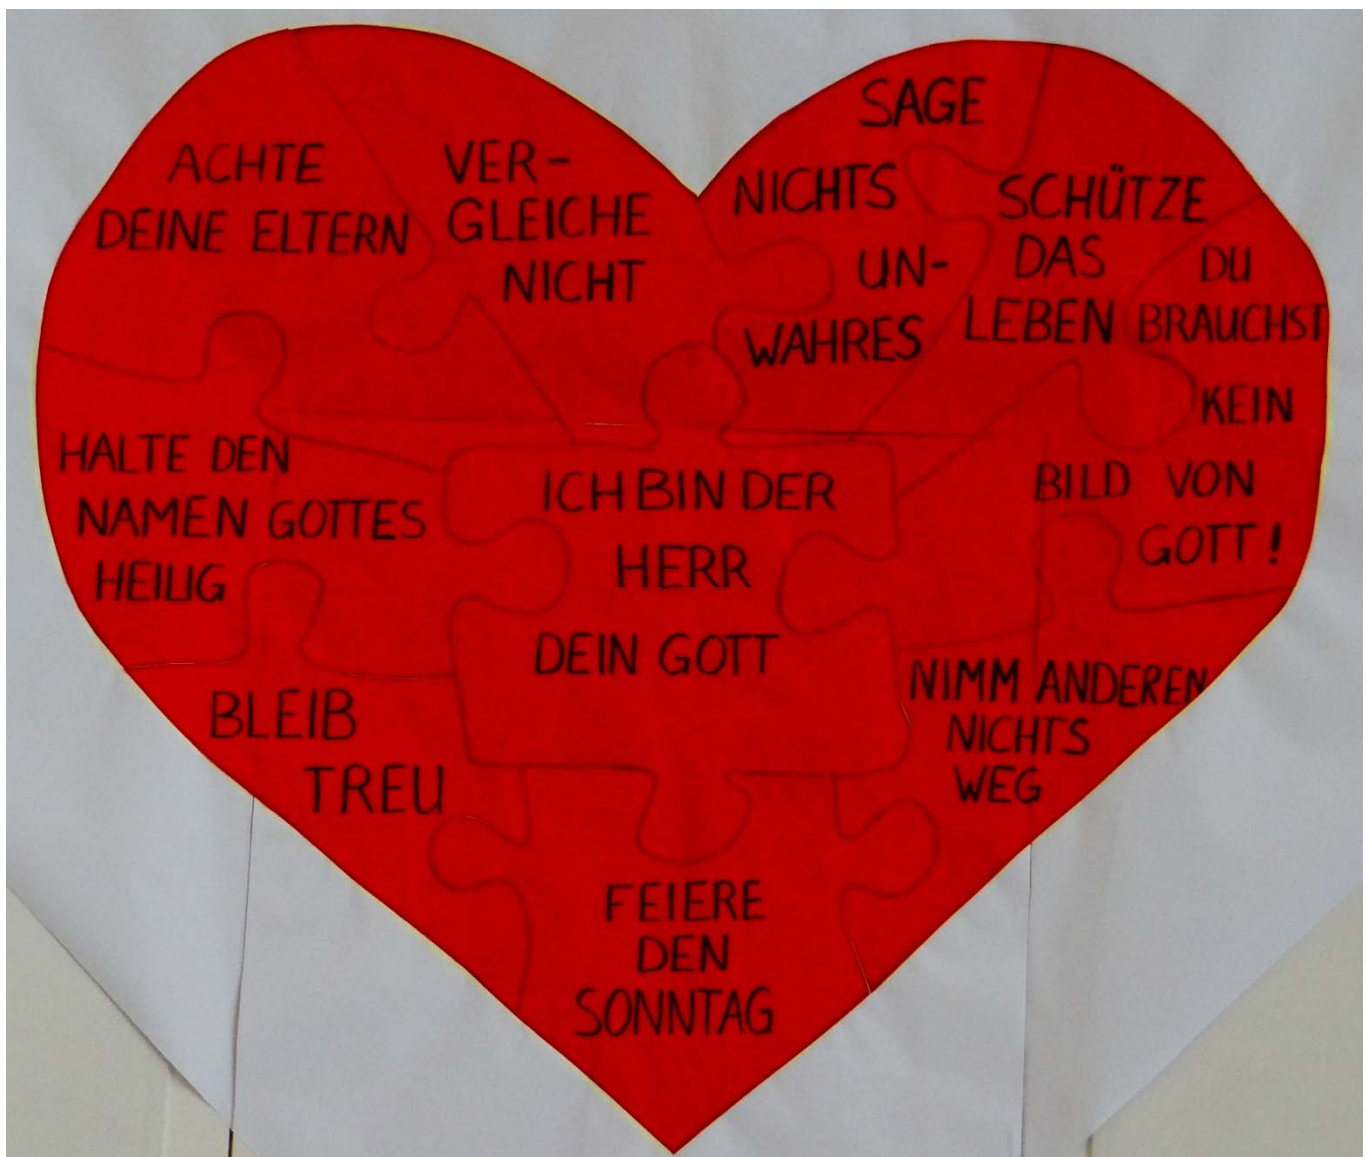 ACHTE
DEINE ELTERN
VER-
GLEICHE
NICHT
SAGE
NICHTS
UN-
WAHRES
SCHÜTZE
DAS
LEBEN
DU
BRAUCHST
KEIN
BILD VON
GOTT!
HALTE DEN
NAMEN GOTTES
HEILIG
ICH BIN DER
HERR
DEIN GOTT
BLEIB
TREU
NIMM ANDEREN
NICHTS
WEG
FEIERE
DEN
SONNTAG